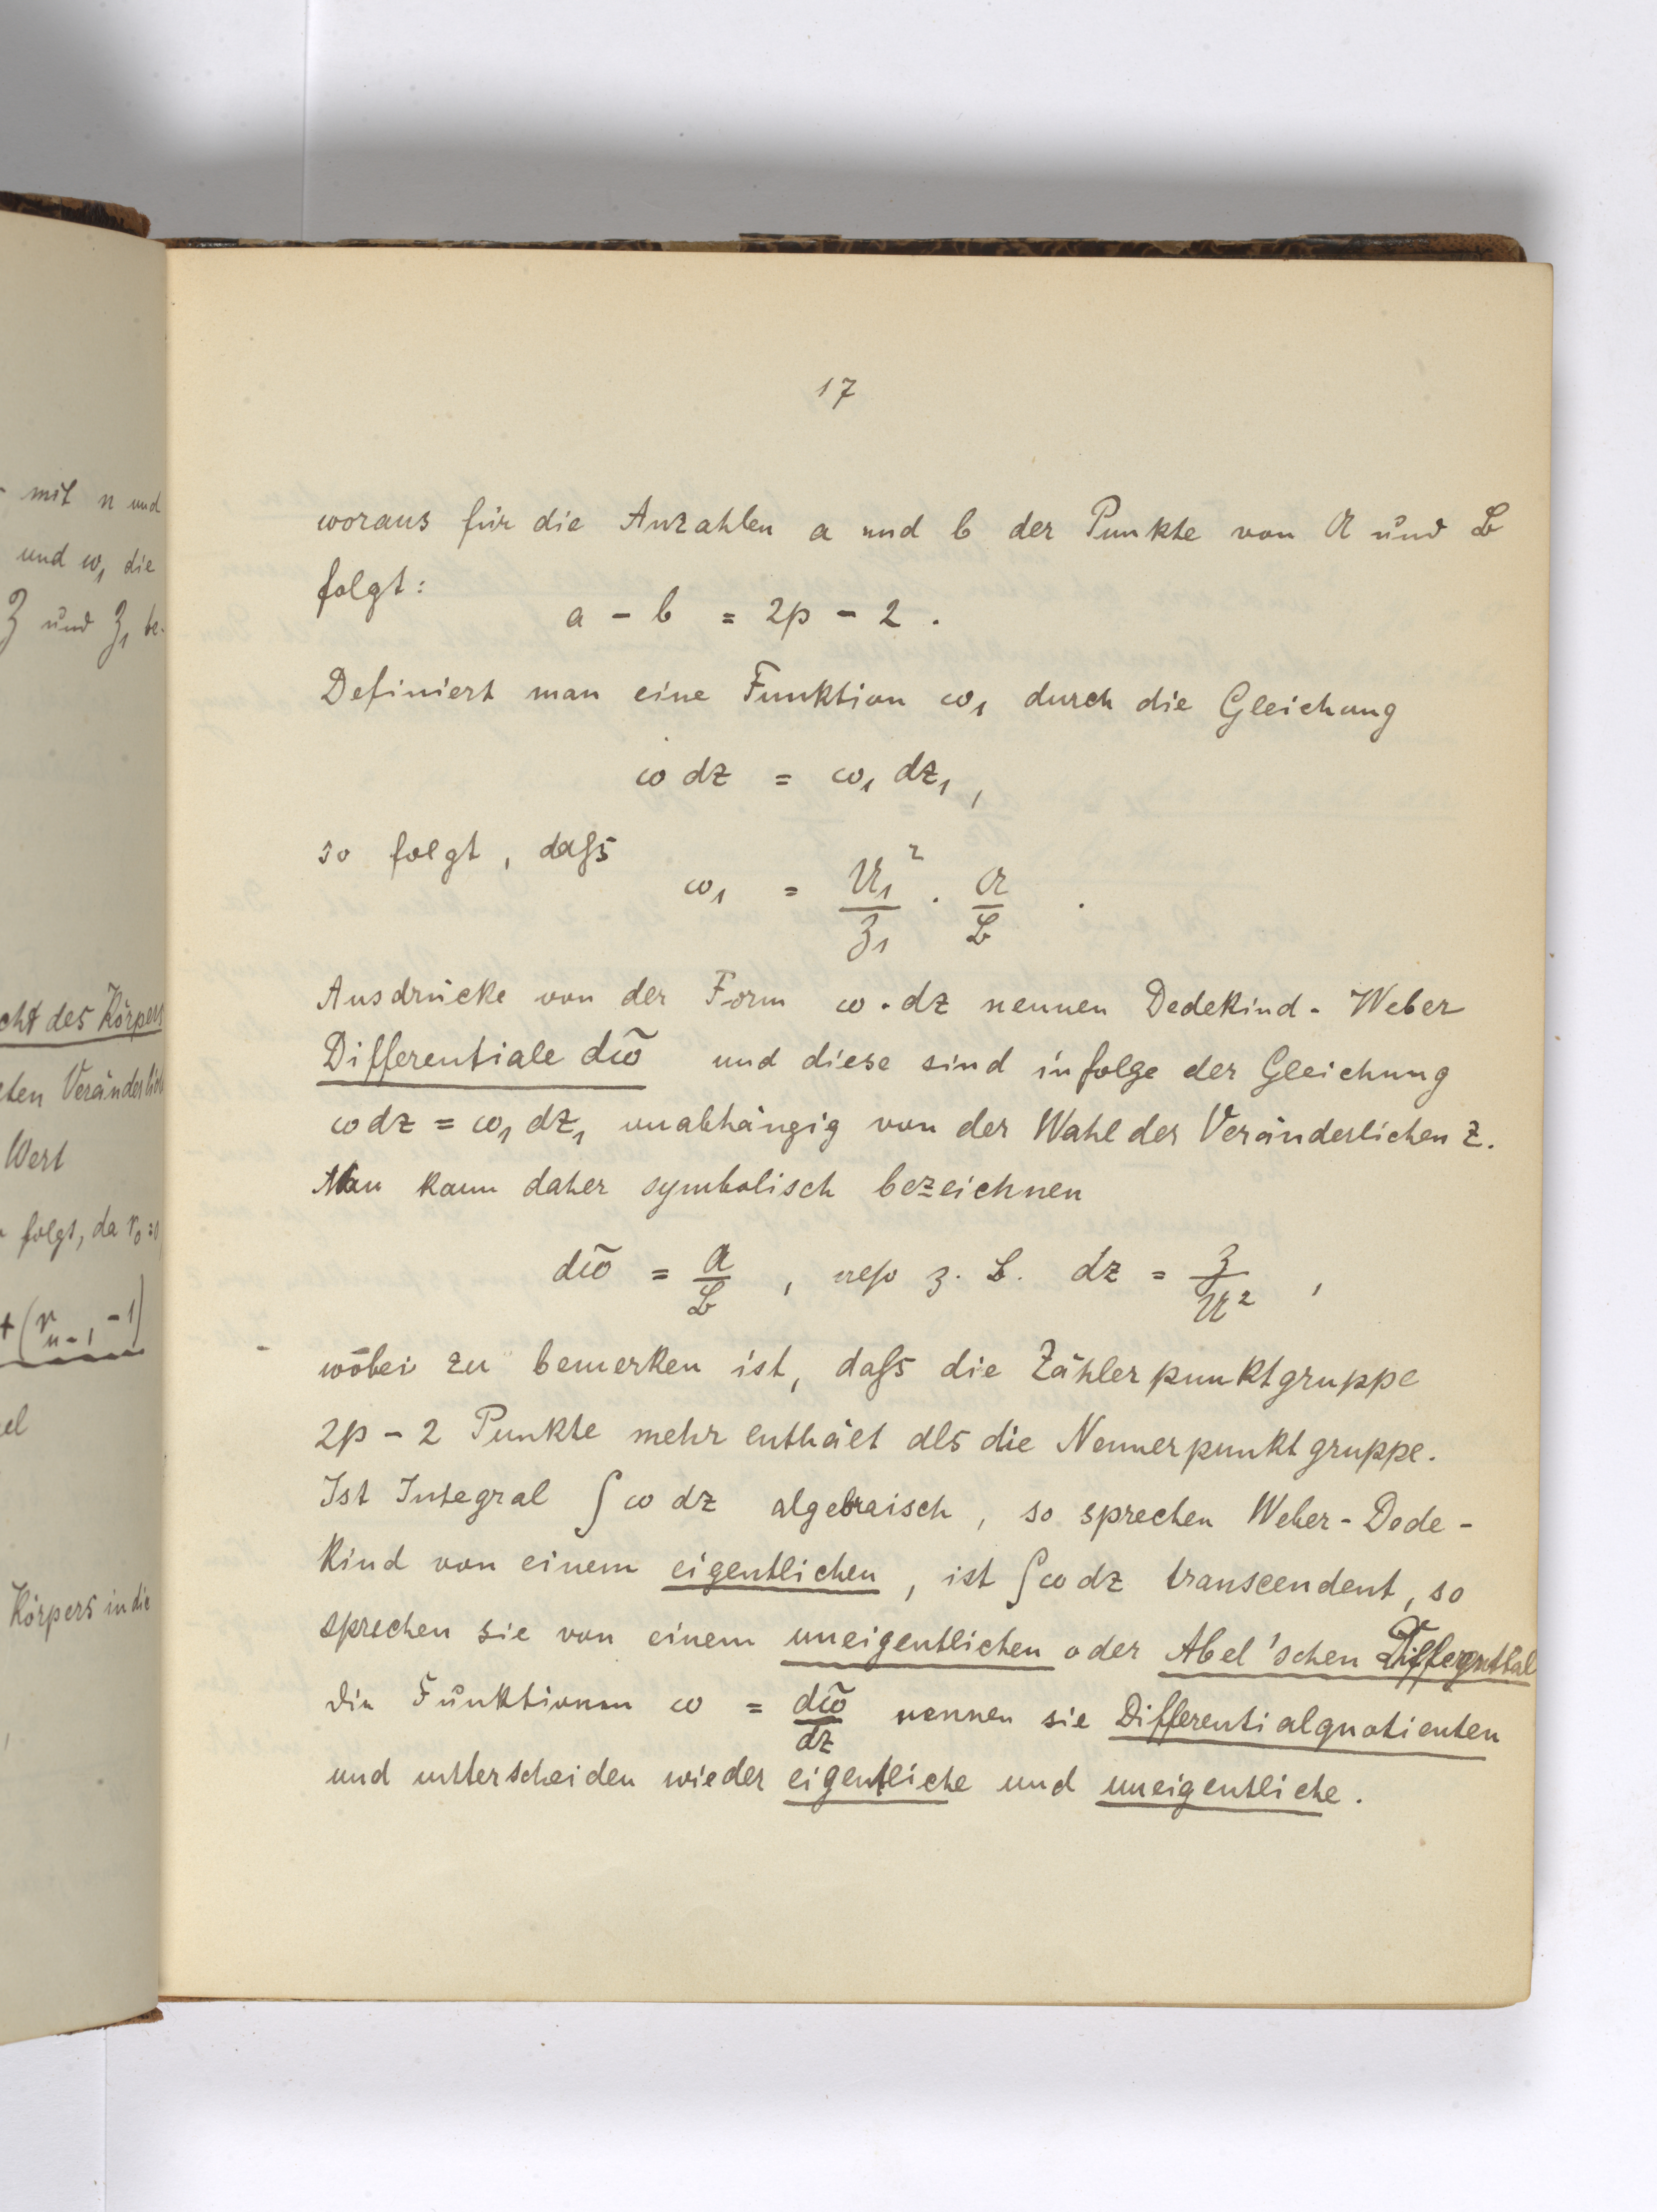 - mit n und
und ω₁ die
ℨ und ℨ₁ be-
cht des Körpers
Wert
folgt, da r₀ =
+ (r_{n-1} - 1)
el
Körpers in die
17
woraus für die Anzahlen a und b der Punkte von 𝔄 und 𝔅
folgt:
a - b = 2p - 2 .
Definiert man eine Funktion ω₁ durch die Gleichung
ω dz = ω₁ dz₁ ,
so folgt, daſs
ω₁ = 𝔘₁² / ℨ₁ · 𝔄 / 𝔅 .
Ausdrücke von der Form ω · dz nennen Dedekind - Weber
Differentiale dω̃ und diese sind infolge der Gleichung
ω dz = ω₁ dz₁ unabhängig von der Wahl der Veränderlichen z.
Man kann daher symbolisch bezeichnen
dω̃ = 𝔄 / 𝔅 , also z. B. dz = ℨ / 𝔘² ,
wobei zu bemerken ist, daſs die Zählerpunktgruppe
2p - 2 Punkte mehr enthält als die Nennerpunktgruppe.
Ist Integral ∫ ω dz algebraisch, so sprechen Weber - Dede-
kind von einem eigentlichen, ist ∫ ω dz transcendent, so
sprechen sie von einem uneigentlichen oder Abel'schen Differential
die Funktionen ω = dω̃ / dz nennen sie Differentialquotienten
und unterscheiden wieder eigentliche und uneigentliche.